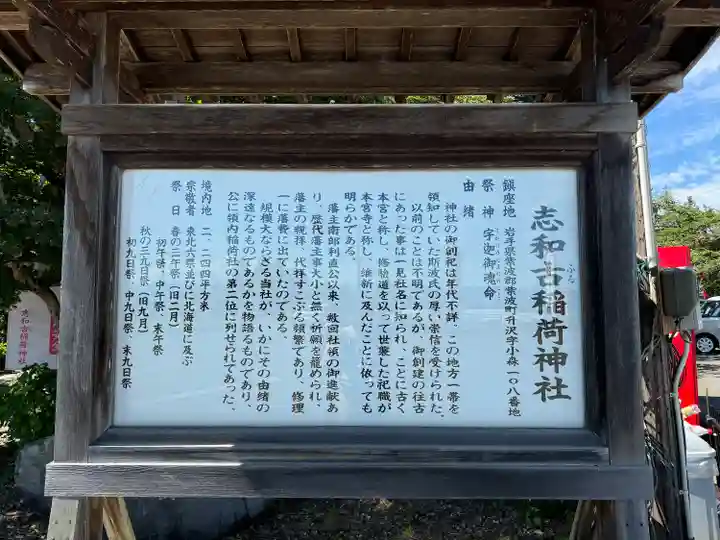 志和古稲荷神社
ふる
鎮座地 岩手県紫波郡紫波町升沢字小森一〇八番地
祭神 宇迦御魂命
由緒
神社の御創祀は年代不詳、この地方一帯を
領知していた斯波氏の厚い崇信を受けられた。
以前のことは不明であるが、御創建の往古
にあった事は一見社名に知られ、ことに古く
本宮と称し、修験道を以って世襲した祀職が
本宮寺と称し、維新に及んだことに依っても
明らかである。
藩主南部利直公以来、数回社領の御進献あ
り、歴代藩主事大小と無く祈願を籠められ、
藩主の親拝、代拝すこぶる頻繁であり、修理
一に藩費に出ていたのである。
規模大ならざる当社が、いかにその由緒の
深遠なるものであるかを物語るものであり、
公に領内稲荷社の第二位に列せられてあった。
境内地 二、二四四平方米
崇敬者 東北六県並びに北海道に及ぶ
祭日 春の三午祭(旧二月)
初午祭、中午祭、末午祭
秋の三九日祭(旧九月)
初九日祭、中九日祭、末九日祭
志和古稲荷神社